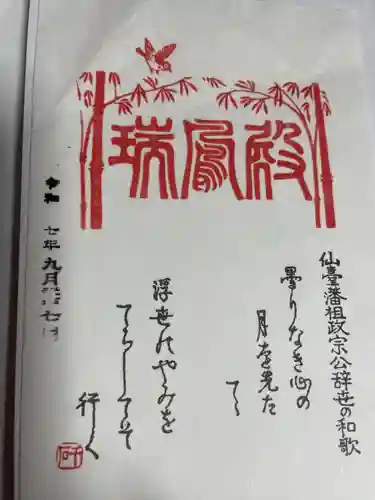 瑞鳳殿
仙臺藩祖政宗公辞世の和歌
曇りなき心の
月を先た
てゝ
浮世のやみを
てらしてそ
行く
令和 七年 九月